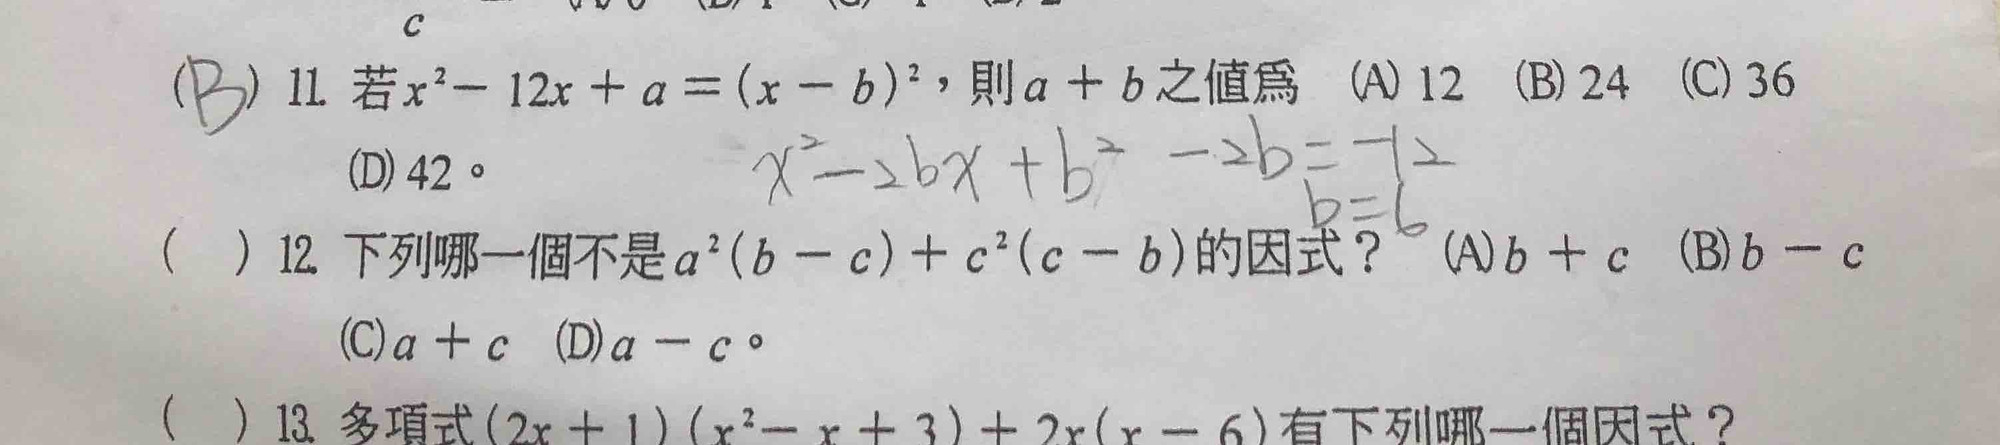 c
(B) 11. 若x²－12x＋a＝(x－b)²，則a＋b之值為 (A) 12 (B) 24 (C) 36
(D) 42。
x²－2bx＋b² －2b＝－12
b＝6
( ) 12. 下列哪一個不是a²(b－c)＋c²(c－b)的因式？ (A)b＋c (B)b－c
(C)a＋c (D)a－c。
( ) 13. 多項式(2x＋1)(x²－x＋3)＋2x(x－6)有下列哪一個因式？